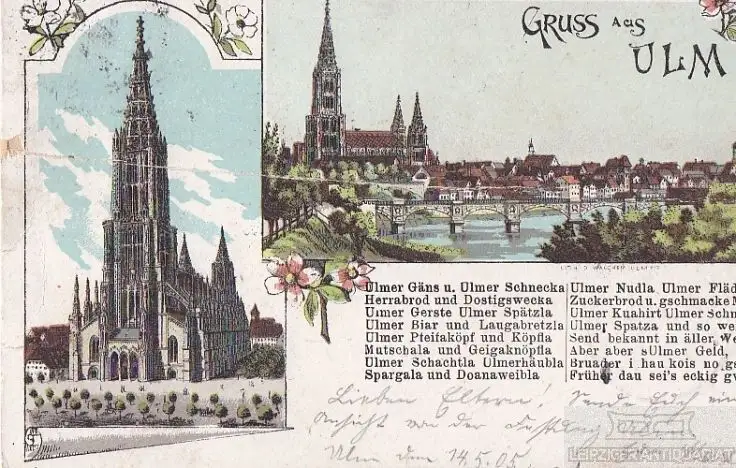 GRUSS AUS
ULM
Ulmer Gäns u. Ulmer Schnecka
Herrabrod und Dostigswecka
Ulmer Gerste Ulmer Spätzla
Ulmer Biar und Laugabretzla
Ulmer Pfeifaköpf und Köpfla
Mutschala und Geigaknöpfla
Ulmer Schachtla Ulmerhäubla
Spargala und Doanaweibla
Ulmer Nudla Ulmer Fläd
Zuckerbrod u. gschmacke M
Ulmer Kuahirt Ulmer Schn
Ulmer Spatza und so we
Send bekannt in äller We
Aber aber s Ulmer Geld,
Bruader i hau kois no gs
Früher dau sei's eckig gw
Lieben Eltern! Sende Euch ein
Ansicht von der Festung
Ulm den 14.5.05.
LEIPZIGER ANTIQUARIAT